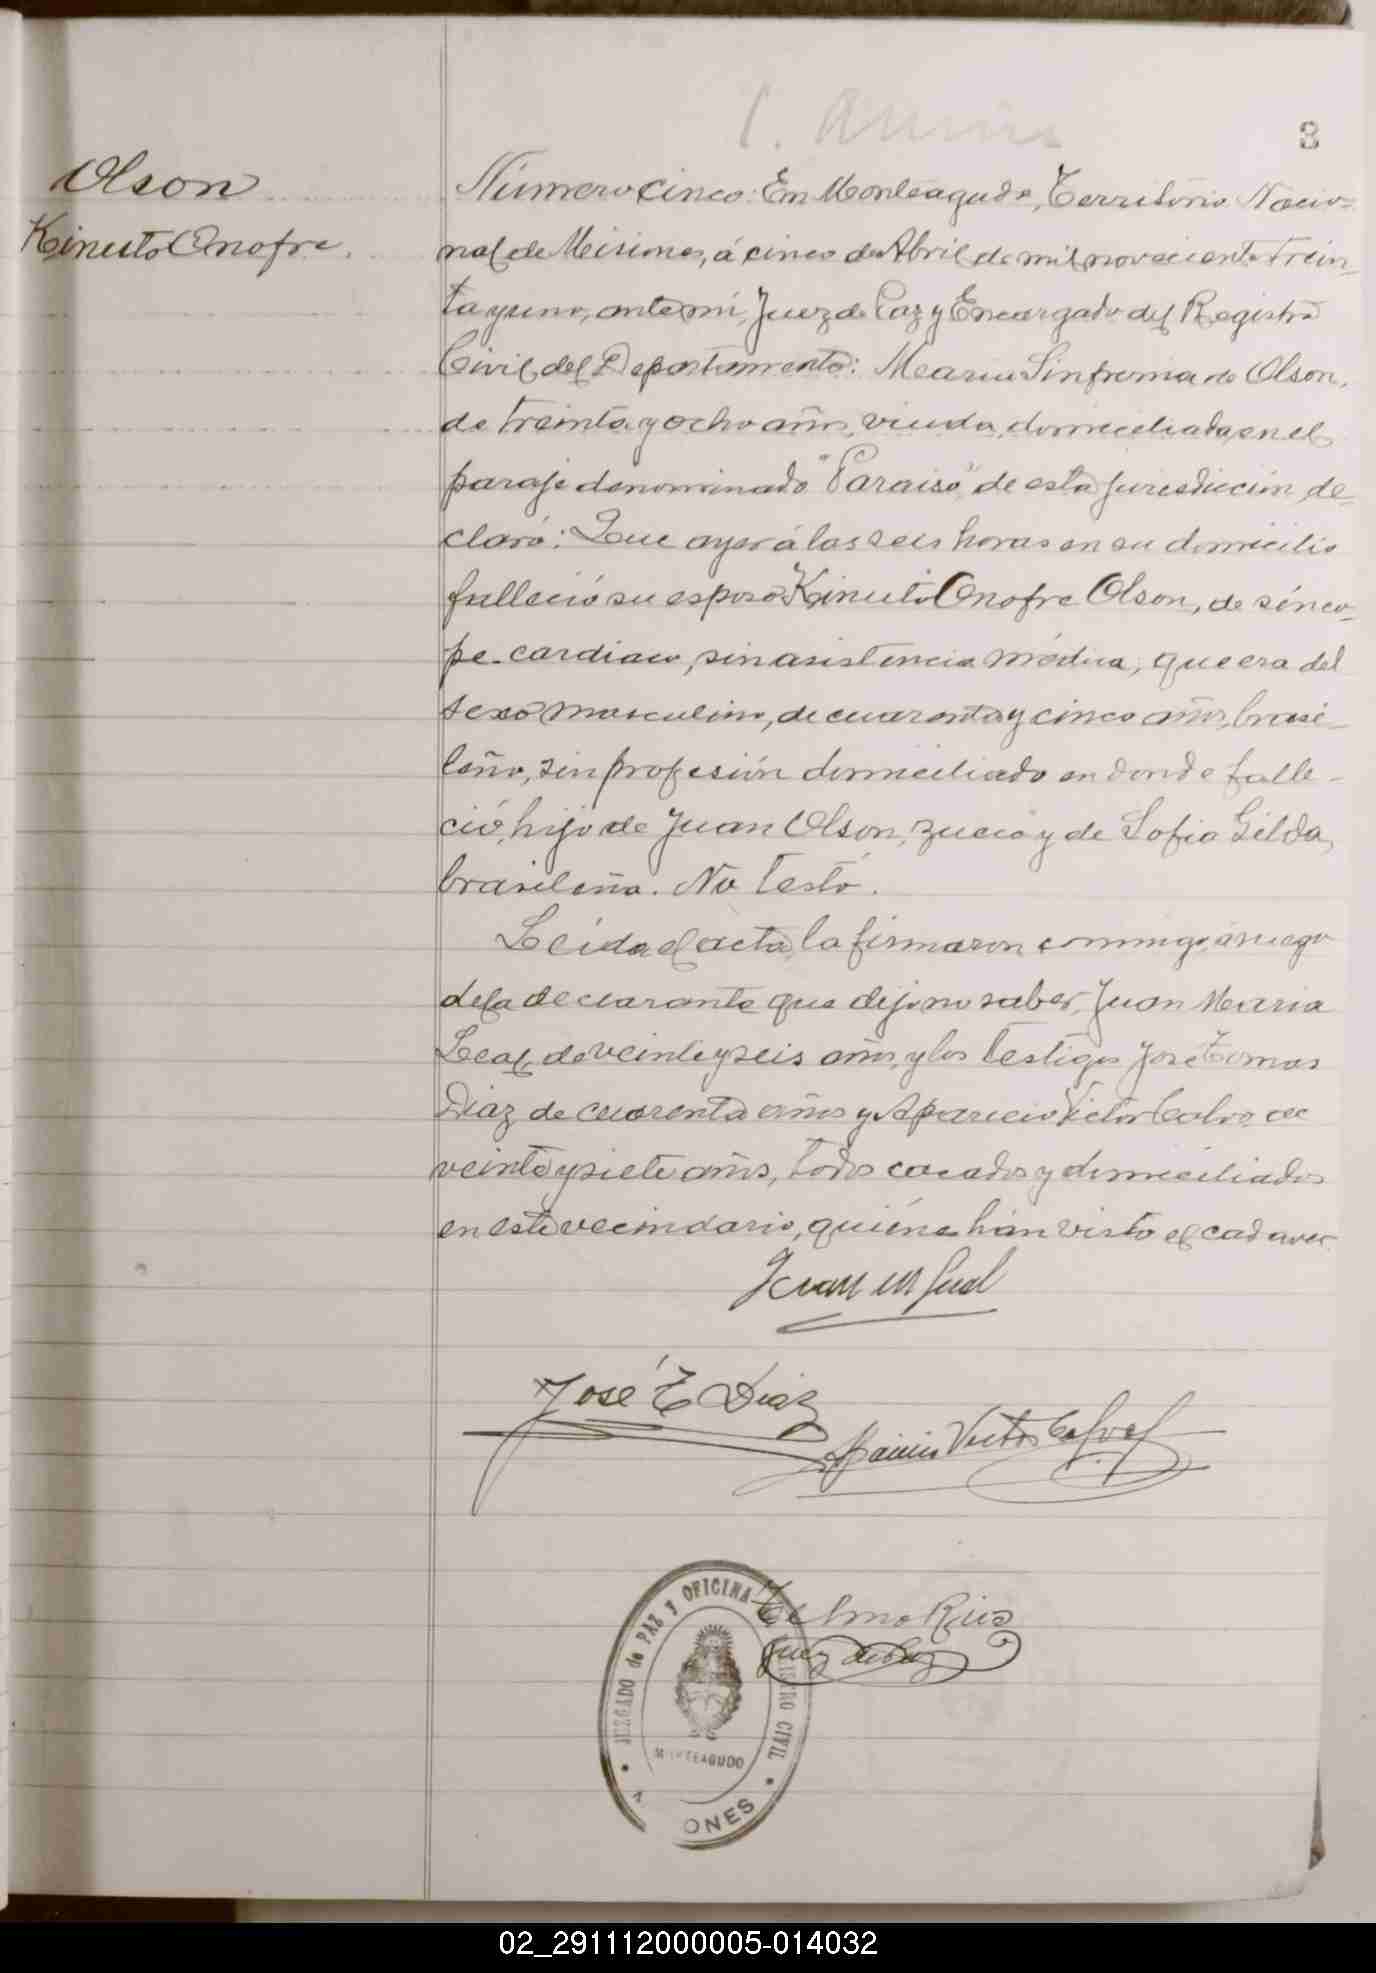 3
Olson
Kinuto Onofre.
Número cinco. En Monteagudo, Territorio Nacio-
nal de Misiones, á cinco de Abril de mil novecientos trein-
ta y uno, ante mi, Juez de Paz y Encargado del Registro
Civil del Departamento: Maria Sinfroniana de Olson,
de treinta y ocho años, viuda, domiciliada, en el
paraje denominado "Paraiso" de esta jurisdicción, de-
claró: Que ayer á las seis horas en su domicilio
falleció su esposo Kinuto Onofre Olson, de sínco-
pe cardiaco, sin asistencia médica, que era del
sexo masculino, de cuarenta y cinco años, brasi-
leño, sin profesión domiciliado en donde falle-
ció, hijo de Juan Olson, zueco y de Sofia Gilda,
brasileña. No testó.
Leida el acta, la firmaron conmigo, á ruego
de la declarante que dijo no saber, Juan Maria
Leal, de veinte y seis años, y los testigos José Tomas
Diaz de cuarenta años y Aparicio Victor Calvo, de
veinte y siete años, todos casados y domiciliados
en este vecindario, quiénes han visto el cadaver.
Juan M Leal
José T Diaz
Aparicio Victor Calvo
Telmo Rios
Juez de Paz
JUZGADO de PAZ y OFICINA REGISTRO CIVIL
MONTEAGUDO
ONES
02_291112000005-014032